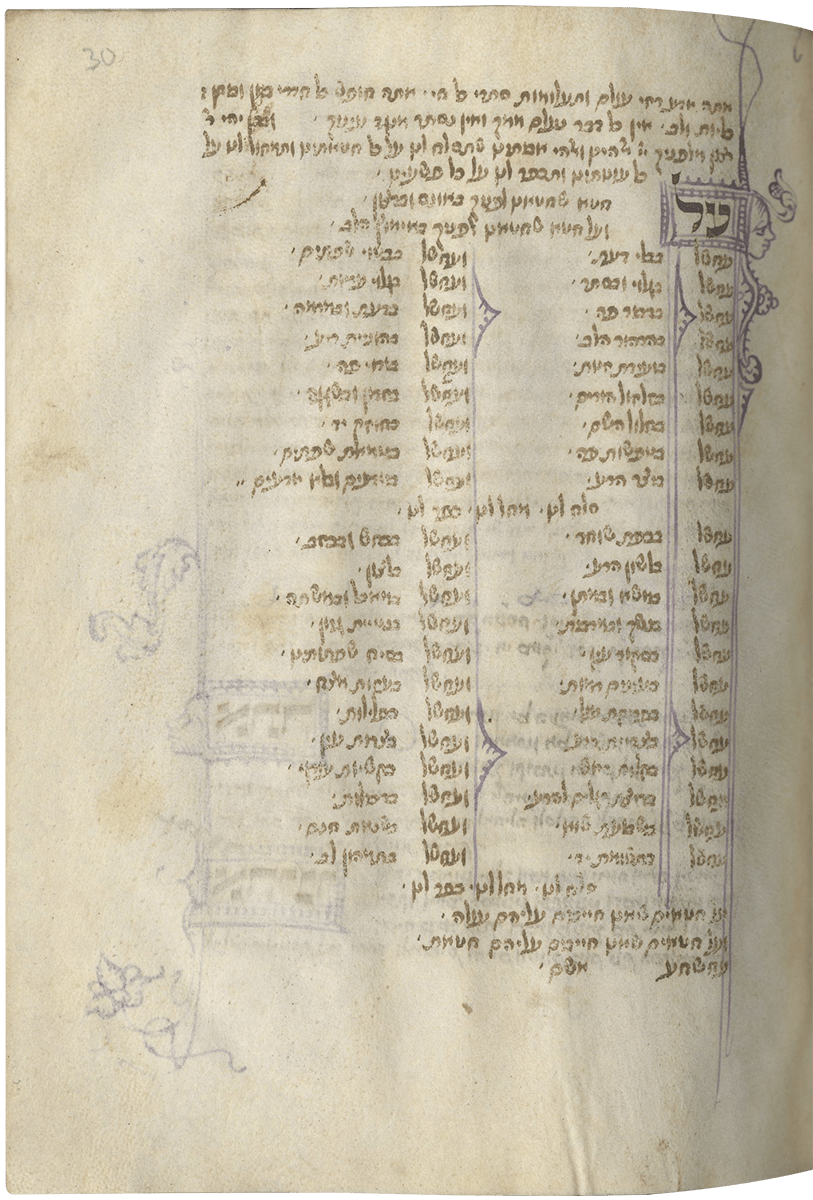 30
אתה יודע רזי עולם ותעלומות סתרי כל חי אתה חופש כל חדרי בטן ובוחן
כליות ולב אין כל דבר נעלם ממך ואין נסתר מנגד עיניך ובכן יהי ר
רצון מלפניך יי אלהינו ואלהי אבותינו שתסלח לנו על כל חטאתינו ותמחול לנו על
כל עונותינו ותכפר לנו על כל פשעינו
על
חטא שחטאנו לפניך באונס וברצון
ועל חטא שחטאנו לפניך באימוץ הלב
עחשל בבלי דעת ועחשל בבטוי שפתים
עחשל בגלוי ובסתר ועחשל בגלוי עריות
עחשל בדבור פה ועחשל בדעת ובמרמה
עחשל בהרהור הלב ועחשל בהונאת ריע
עחשל בועידת זנות ועחשל בוידוי פה
עחשל בזלזול הורים ועחשל בזדון ובשגגה
עחשל בחלול השם ועחשל בחוזק יד
עחשל בטפשות פה ועחשל בטומאת שפתים
עחשל ביצר הרע ועחשל ביודעים ובלא יודעים
סלח לנו מחל לנו כפר לנו
עחשל בכפת שוחד ועחשל בכחש ובכזב
עחשל בלשון הרע ועחשל בלצון
עחשל במשא ובמתן ועחשל במאכל ובמשתה
עחשל בנשך ובמרבית ועחשל בנטיית גרון
עחשל בסקור עין ועחשל בסיח שפתותינו
עחשל בעינים רמות ועחשל בעזות מצח
עחשל בפריקת עול ועחשל בפלילות
עחשל בצדיית רע ועחשל בצרות עין
עחשל בקלות ראש ועחשל בקשיות עורף
עחשל בריצת רגלים להרע ועחשל ברכילות
עחשל בשבועת שוא ועחשל בשנאת חנם
עחשל בתשומת יד ועחשל בתמהון לב
סלח לנו מחל לנו כפר לנו
ועל חטאים שאנו חייבים עליהם עולה
ועל חטאים שאנו חייבים עליהם חטאת
עח שחע אשם